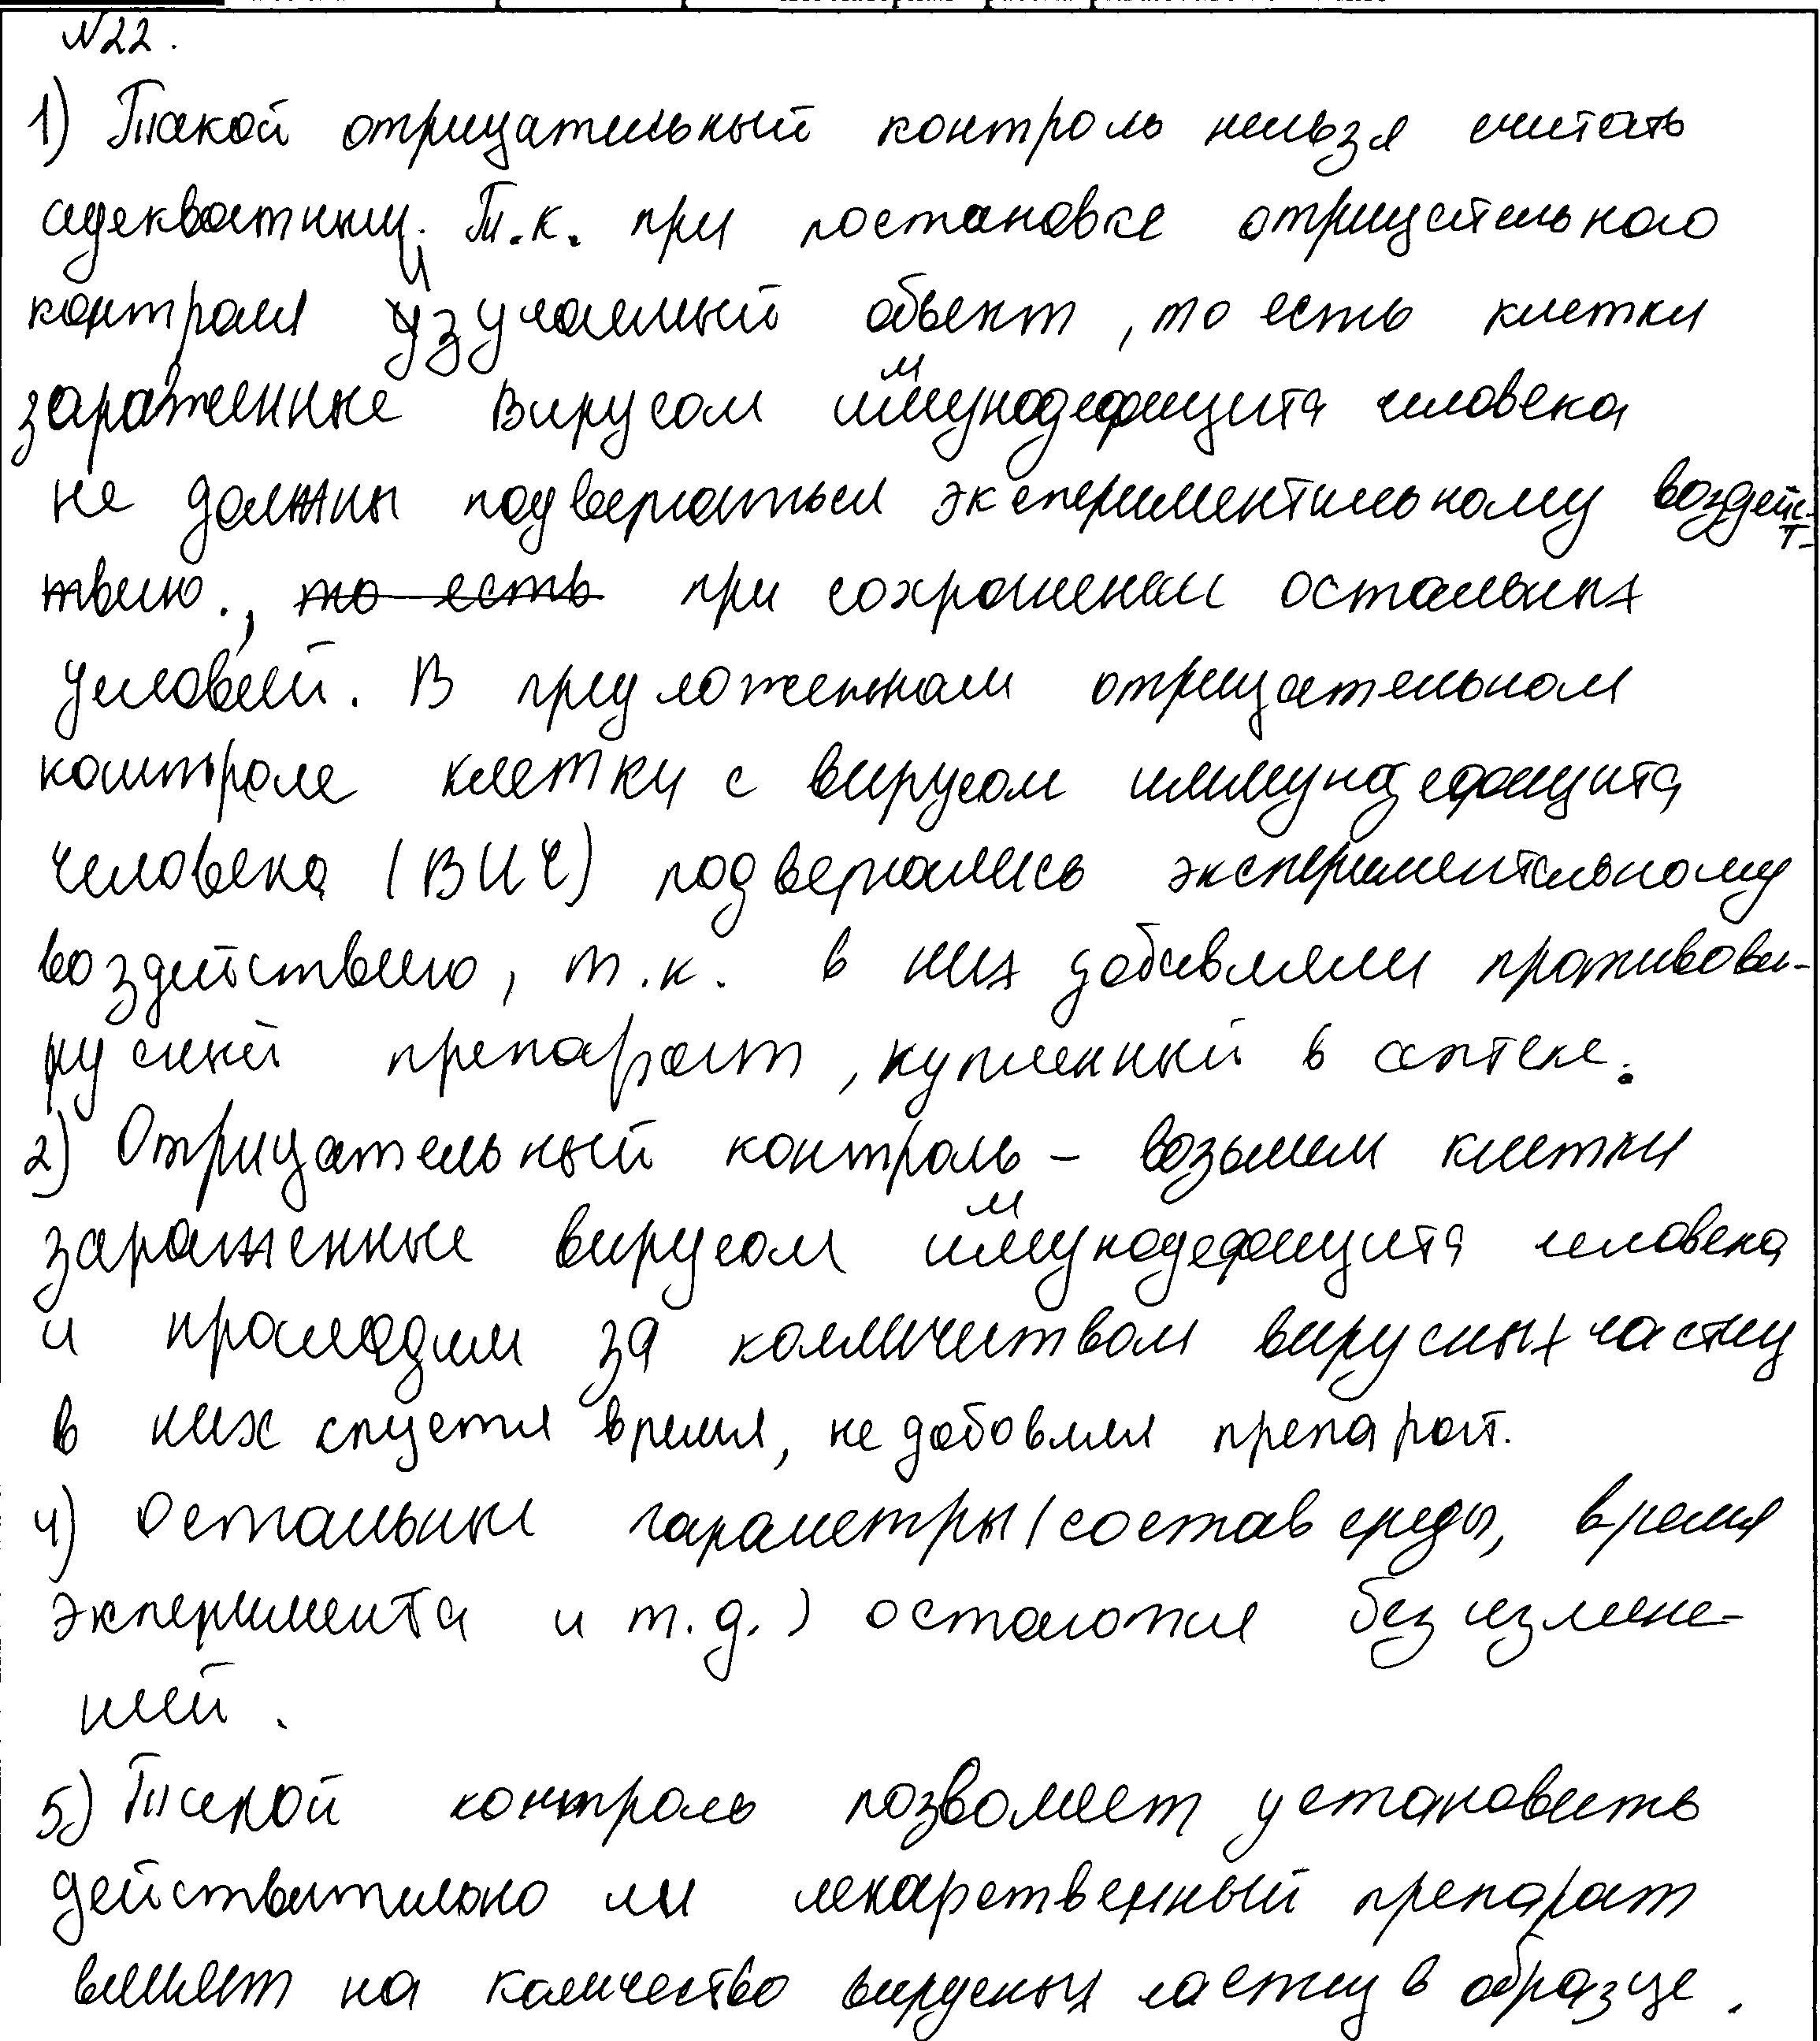 №22.
1) Такой отрицательный контроль нельзя считать
адекватным. Т.к. при постановке отрицательного
контроля изучаемый объект, то есть клетки
зараженные вирусом иммунодефицита человека
не должны подвергаться экспериментальному воздейс-
твию., то есть при сохранении остальных
условий. В предложенном отрицательном
контроле клетки с вирусом иммунодефицита
человека (ВИЧ) подвергались экспериментальному
воздействию, т.к. в них добавляли противови-
русный препарат, купленный в аптеке.
2) Отрицательный контроль - возьмем клетки
зараженные вирусом иммунодефицита человека
и проследим за колличеством вирусных частиц
в них спустя время, не добовляя препарат.
4) Остальные параметры (состав среды, время
экперимента и т.д.) остаются без измене-
ний.
5) Такой контроль позволяет установить
действительно ли лекарственный препарат
влияет на количество вирусных частиц в образце.